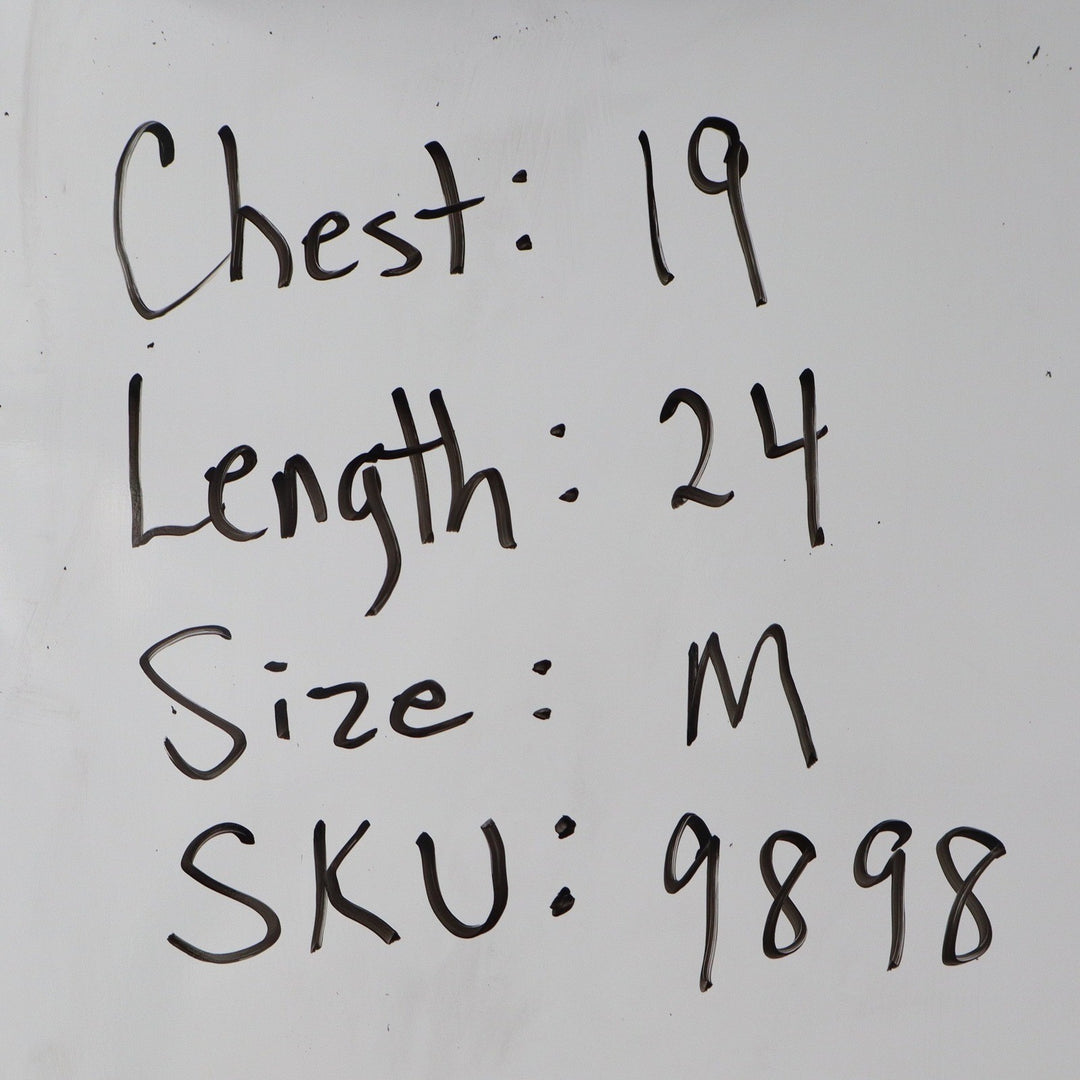 Chest: 19
Length: 24
Size: M
SKU: 9898